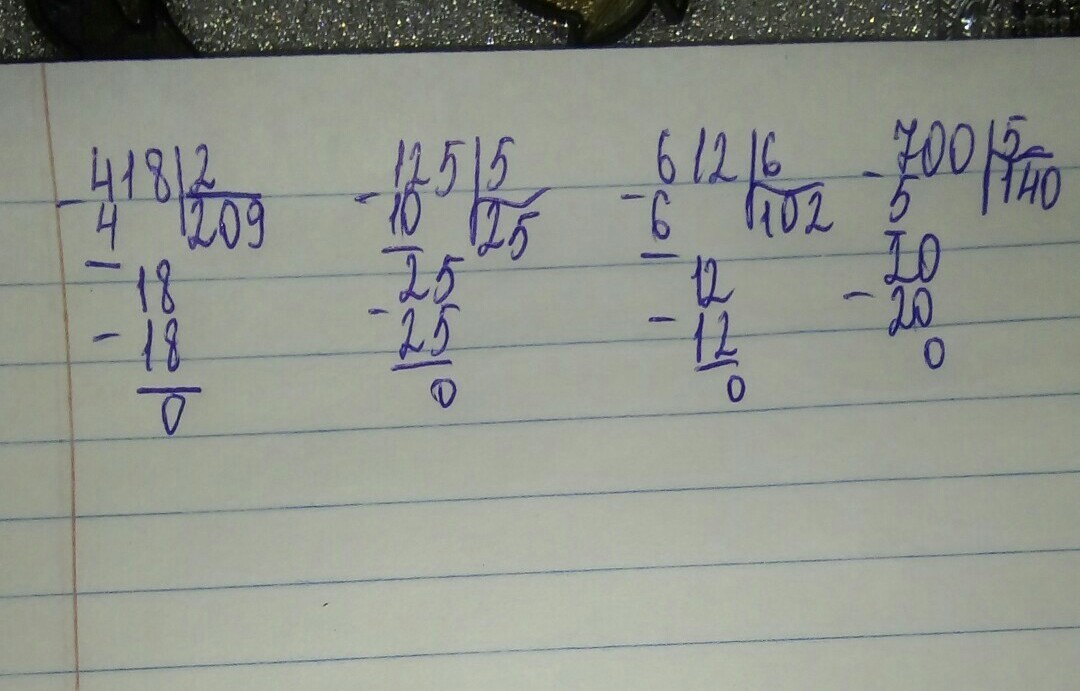 - 418|2 - 125|5 - 612|6 - 700|5
4 209 10 25 6 102 5 140
18 25 12 20
- 18 - 25 - 12 - 20
0 0 0 0